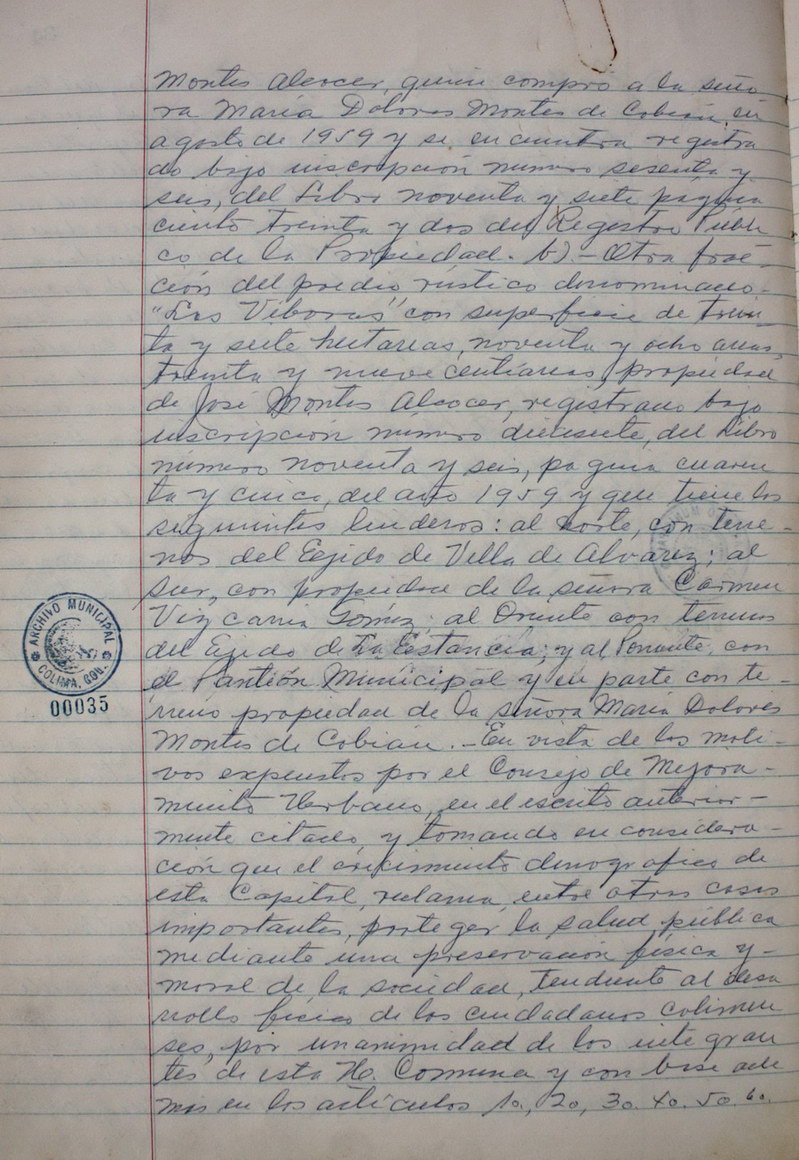 Montes Alcocer, quien compró a la seño
ra María Dolores Montes de Cobián, en
agosto de 1959 y se encuentra registra
do bajo inscripción número sesenta y
seis, del Libro noventa y siete página
ciento treinta y dos del Registro Públi
co de la Propiedad. b).- Otra frac-
ción del predio rústico denominado-
"Las Víboras" con superficie de trein-
ta y siete hectareas, noventa y ocho areas,
treinta y nueve centiareas, propiedad
de José Montes Alcocer, registrado bajo
inscripción número diecisiete, del Libro
número noventa y seis, página cuaren
ta y cinco, del año 1959 y que tiene los
siguientes linderos: al norte, con terre-
nos del Ejido de Villa de Alvarez; al
sur, con propiedad de la señora Carmen
Vizcaino Gómez; al Oriente con terrenos
del Ejido de La Estancia; y al Poniente, con
el Panteón Municipal y en parte con te-
rreno propiedad de la señora María Dolores
Montes de Cobián.- En vista de los moti-
vos expuestos por el Consejo de Mejora-
miento Urbano, en el escrito anterior-
mente citado, y tomando en considera-
ción que el crecimiento demografico de
esta Capital, reclama, entre otras cosas
importantes, proteger la salud pública
mediante una preservación física y-
moral de la sociedad, tendiente al desa
rrollo físico de los ciudadanos colimen
ses, por unanimidad de los integran
tes de esta H. Comuna y con base ade
mas en los artículos 1o, 2o, 3o. 4o. 5o. 6o.
ARCHIVO MUNICIPAL
COLIMA, COL.
00035